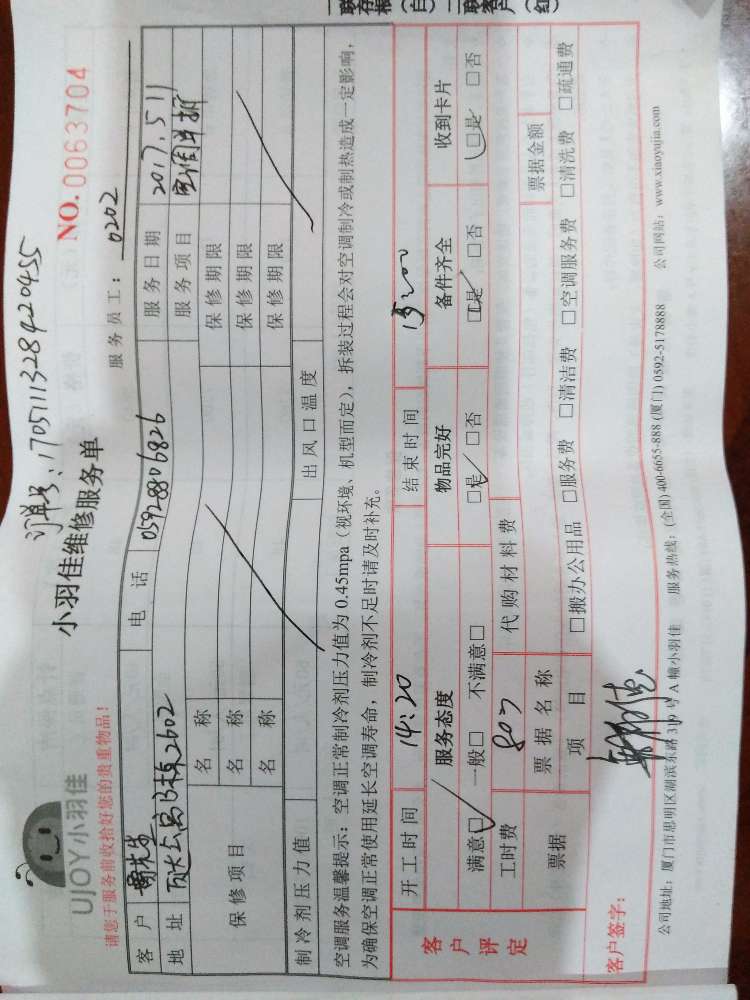 一联存根(白) 二联客户(红)
订单号:1705111328420455
UJOY小羽佳
小羽佳维修服务单
NO. 0063704
请您于服务前收拾好您的贵重物品!
服务员工: 0202
客户 先生 电话 0592-8806826 服务日期 2017.5.11
地址 B栋2602 服务项目 空调单拆
保修项目
名称 保修期限
名称 保修期限
名称 保修期限
制冷剂压力值 出风口温度
空调服务温馨提示:空调正常制冷剂压力值为 0.45mpa(视环境、机型而定),拆装过程会对空调制冷或制热造成一定影响,
为确保空调正常使用延长空调寿命,制冷剂不足时请及时补充。
客户评定
开工时间 14:20 结束时间 15:00
服务态度 物品完好 备件齐全 收到卡片
满意□ 一般□ 不满意□ □是 □否 □是 □否 □是 □否
工时费 80 代购材料费
票据 票据名称 票据金额
项目 □搬办公用品 □服务费 □清洁费 □空调服务费 □清洗费 □疏通费
客户签字:
公司地址:厦门市思明区湖滨东路 319 号 A 幢小羽佳 服务热线:(全国) 400-6655-888 (厦门) 0592-5178888 公司网站:www.xiaoyujia.com